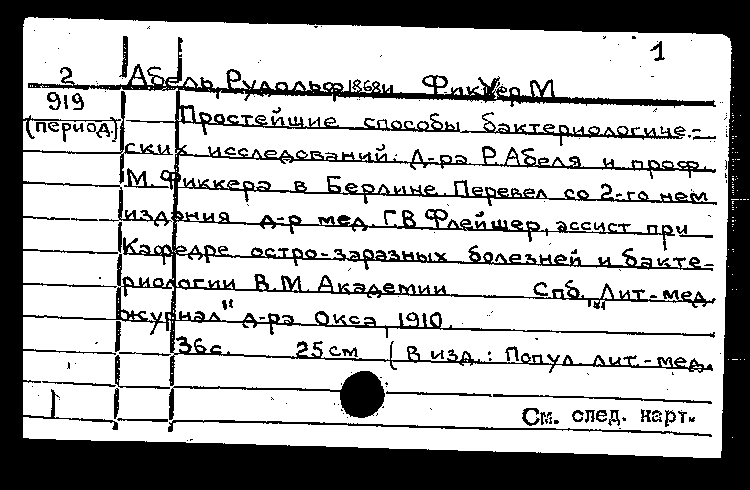 1
2 Абель, Рудольф 1868 и Фиккер М
919 Простейшие способы бактериологиче-
(период.) ских исследований. Д-ра Р. Абеля и проф.
М. Фиккера в Берлине. Перевел со 2-го нем
издания д-р мед. Г.В Флейшер, ассист при
Кафедре остро-заразных болезней и бакте-
риологии В.М. Академии Спб. "Лит.-мед.
журнал" д-ра Окса, 1910.
36с. 25 см (В изд.: Попул. лит.-мед.
См. след. карт.